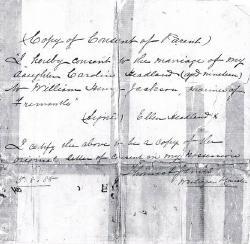 (Copy of Consent of Parent)
I hereby consent to the marriage of my
daughter Caroline Headland (aged nineteen)
to William Henry Jackson, of
Fremantle
(Signed) Ellen Headland x
I certify the above to be a copy of the
original letter of consent in my